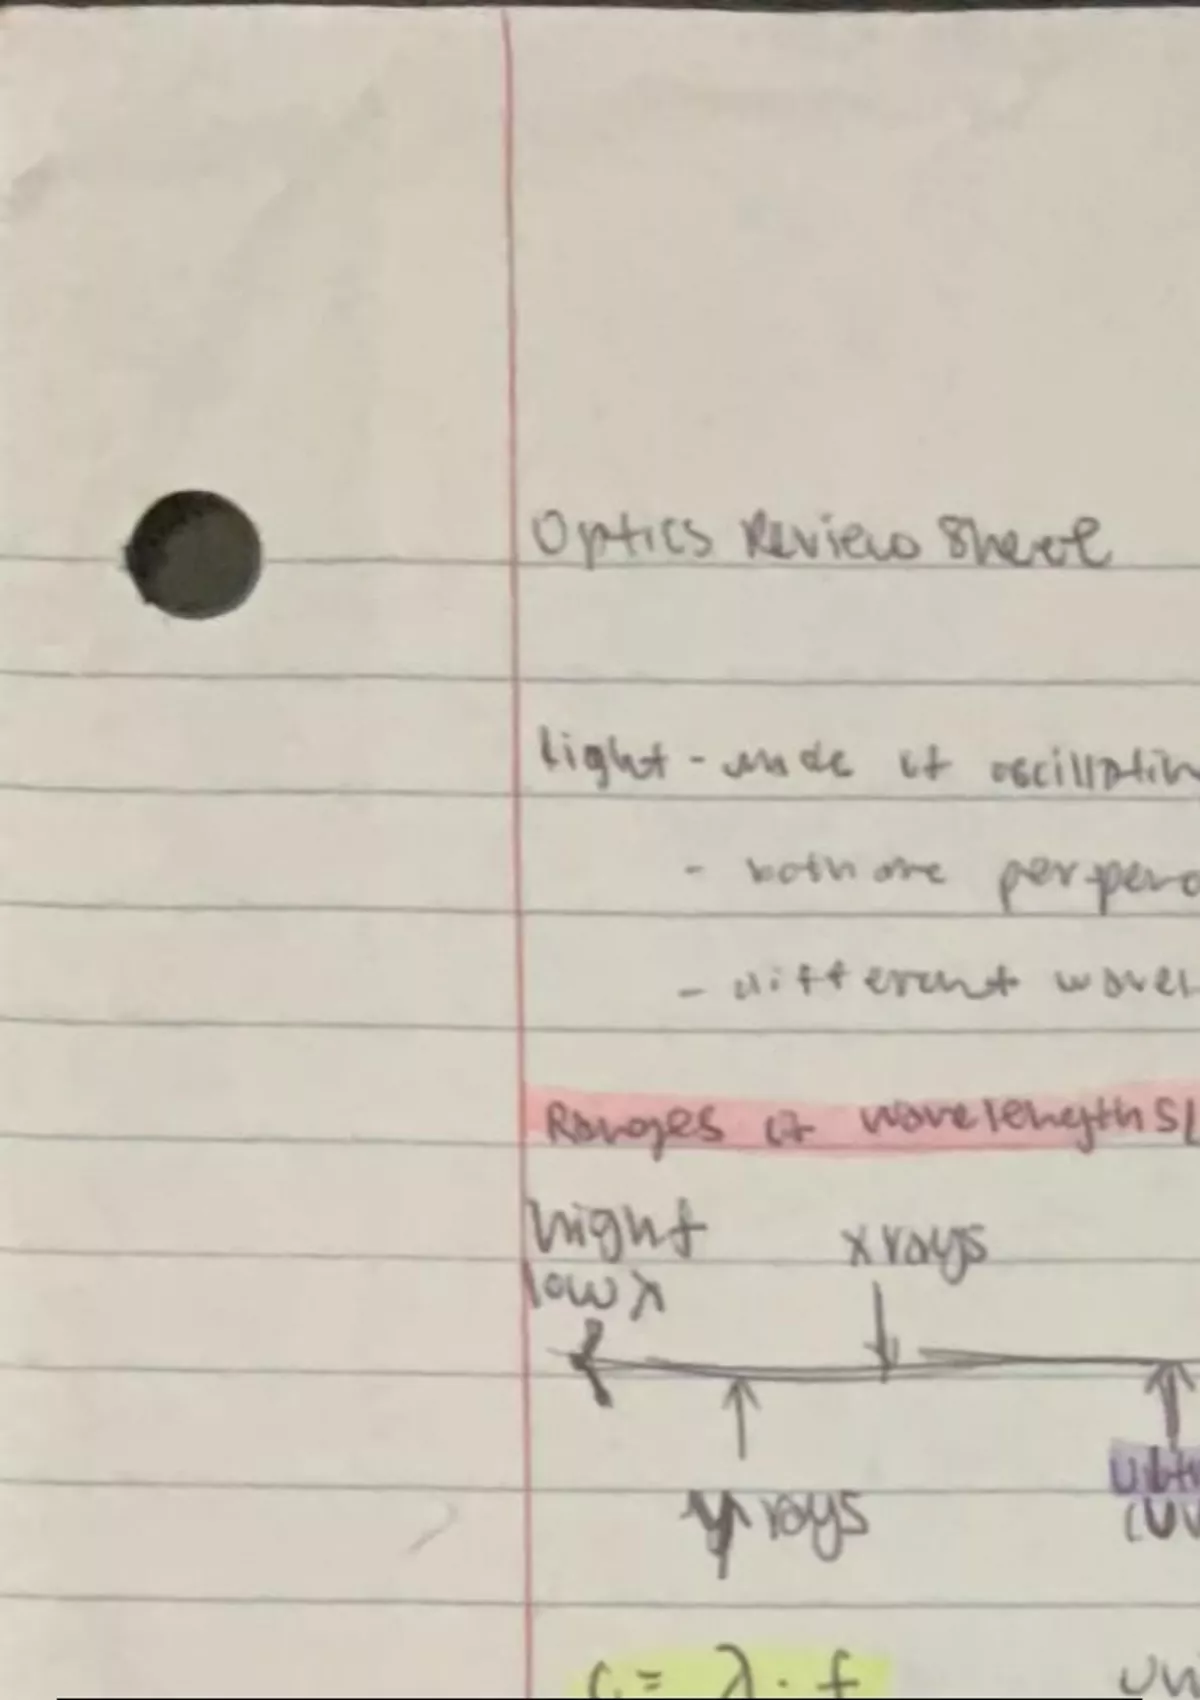 Optics Review Sheet
Light - made of oscillatin
- both are perpend
- different wavel
Ranges of wavelengths
high f
x rays
low λ
γ rays
(UV
c = λ · f